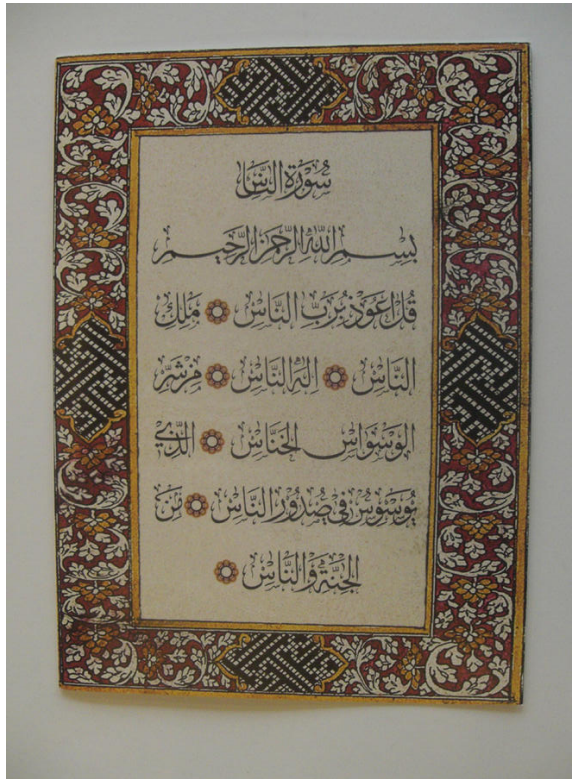 سُورَةُ النَّاسِ
بِسْمِ اللَّهِ الرَّحْمَنِ الرَّحِيمِ
قُلْ اَعُوذُ بِرَبِّ النَّاسِ ۞ مَلِكِ
النَّاسِ ۞ اِلَهِ النَّاسِ ۞ مِنْ شَرِّ
الْوَسْوَاسِ الْخَنَّاسِ ۞ الَّذِي
يُوَسْوِسُ فِي صُدُورِ النَّاسِ ۞ مِنَ
الْجِنَّةِ وَالنَّاسِ ۞